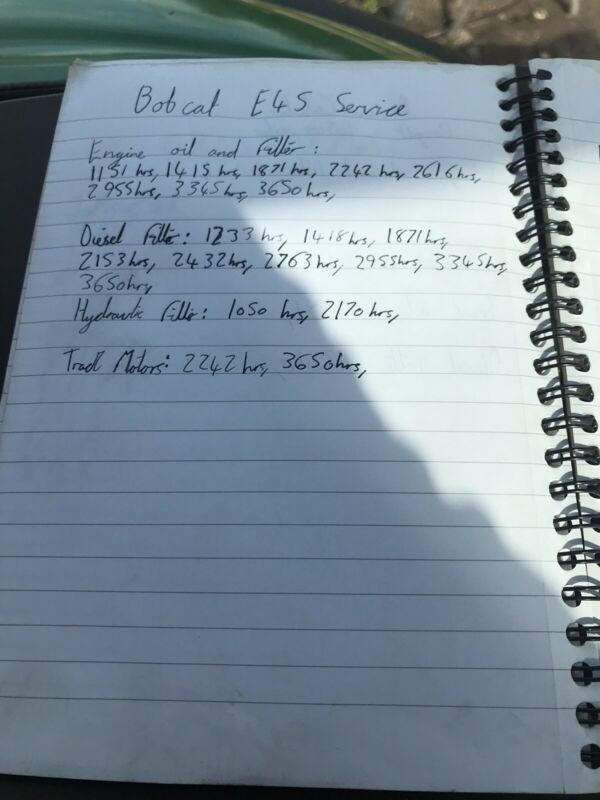 Bobcat E45 Service
Engine oil and Filter:
1151 hrs, 1415 hrs, 1871 hrs, 2242 hrs, 2616 hrs,
2955 hrs, 3345 hrs, 3650 hrs,
Diesel Filter: 1233 hrs, 1418 hrs, 1871 hrs,
2153 hrs, 2432 hrs, 2763 hrs, 2955 hrs, 3345 hrs,
3650 hrs,
Hydraulic Filter: 1050 hrs, 2170 hrs,
Track Motors: 2242 hrs, 3650 hrs,